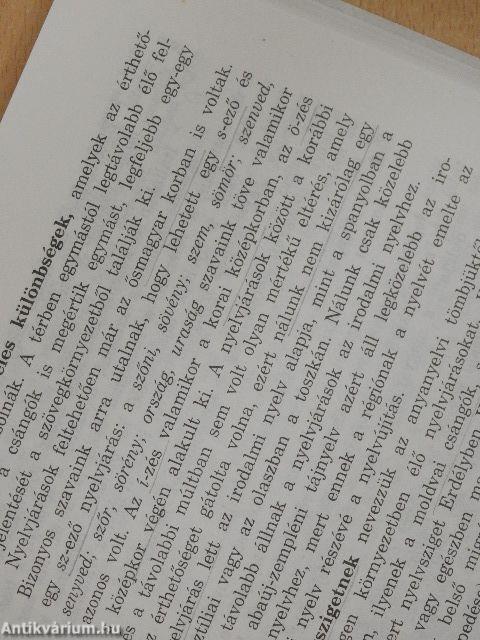 különbségek, amelyek az érthető-
A térben egymástól legtávolabb élő fel-
a csángók is megértik egymást, legfeljebb egy-egy
jelentését a szövegkörnyezetből találják ki.
Nyelvjárások feltehetően már az ősmagyar korban is voltak.
Bizonyos szavaink arra utalnak, hogy lehetett egy s-ező és
egy sz-ező nyelvjárás: a szőni, sövény; szem, sömör; szenved,
senyved; szőr, sörény; ország, uraság szavaink töve valamikor
azonos volt. Az í-zés valamikor a korai középkorban, az ö-zés
középkor végén alakult ki. A nyelvjárások között a korábbi
és a távolabbi múltban sem volt olyan mértékű eltérés, amely
az érthetőséget gátolta volna, ezért nálunk nem kizárólag egy
elvjárás lett az irodalmi nyelv alapja, mint a spanyolban a
ztíliai vagy az olaszban a toszkán. Nálunk csak közelebb
távolabb állnak a nyelvjárások az irodalmi nyelvhez.
abaúj-zempléni tájnyelv azért áll legközelebb az iro-
nyelvhez, mert ennek a régiónak a nyelvét emelte az
nyelv részévé a nyelvújítás.
szigetnek nevezzük az anyanyelvi tömbjüktől
en környezetben élő nyelvjárásokat.
ilyenek a moldvai csángók
nyelvsziget Erdélyben
vagy egészében
belső
Antikvárium.hu